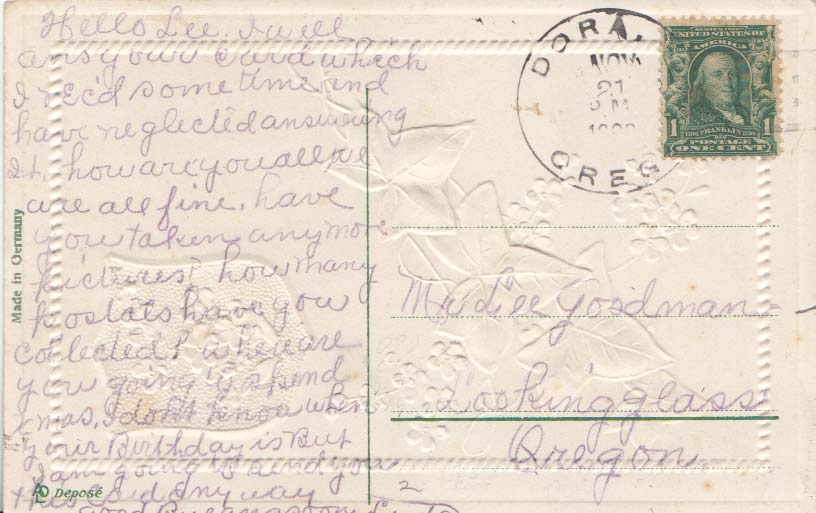 Hello Lee. I will
ans your card which
I rec'd some time and
have neglected answering
It. how are you all we
are all fine. have
you taken anymore
pictures? how many
postals have you
collected? where are
you going to spend
xmas. I don't know when
your Birthday is But
I am going to send you
this Card any way
Good By
Made in Germany
Deposé
DORA,
NOV
21
OREG
SERIES 1902
UNITED STATES OF
AMERICA
1 1
FRANKLIN
POSTAGE
ONE CENT
Mr Lee Goodman
Lookingglass
Oregon
2